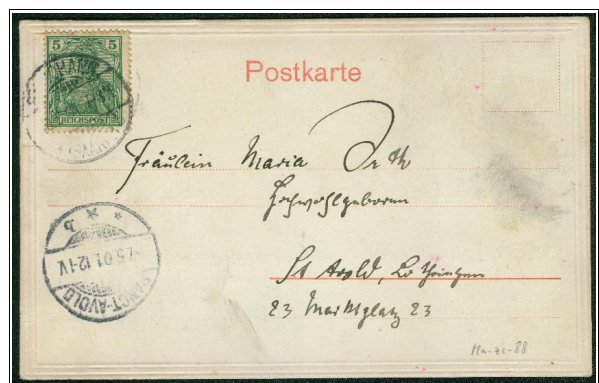 5 5
REICHSPOST
Postkarte
Fräulein Maria
Hochwohlgeboren
St Avold, Lothringen
23 Marktplatz 23
SANCT-AVOLD
7.5.01.12-1V.
* * b
Ma-zi-88